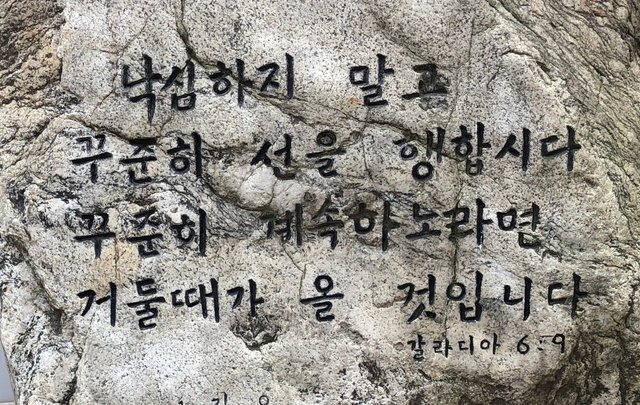 낙심하지 말고
꾸준히 선을 행합시다
꾸준히 계속하노라면
거둘때가 올 것입니다
갈라디아 6:9